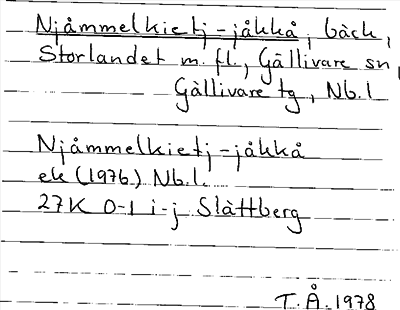 Njåmmelkietj-jåkkå, bäck,
Storlandet m. fl., Gällivare sn,
Gällivare tg, Nb. l
Njåmmelkietj-jåkkå
ek (1976) Nb. l.
27K 0-1 i-j Slåttberg
T. Å. 1978